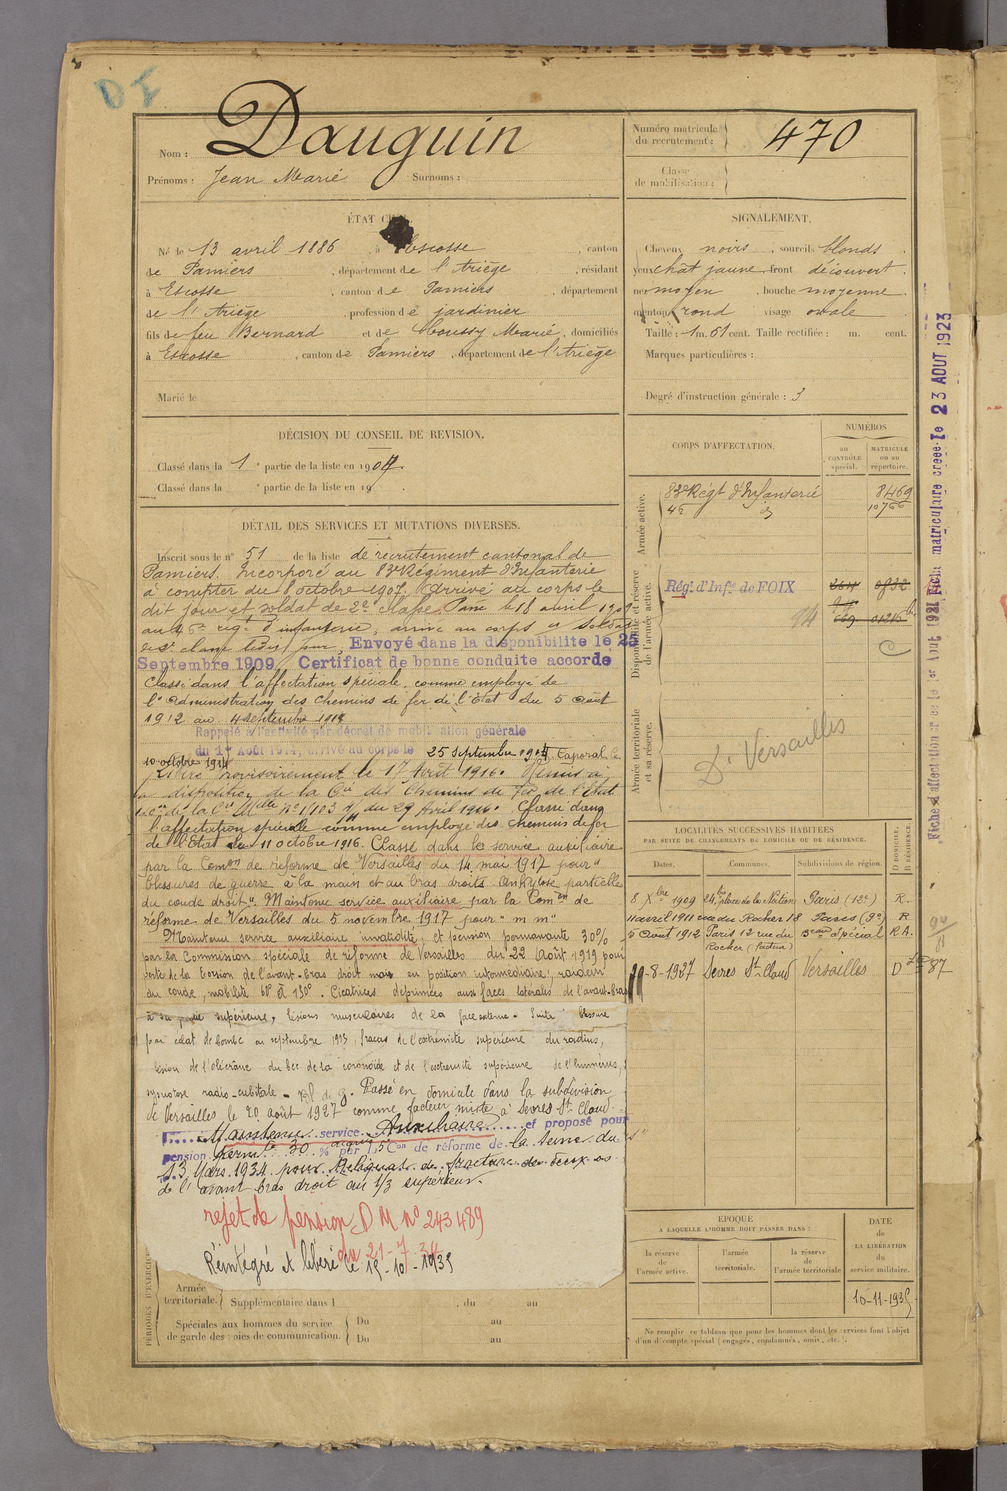 Nom : Dauguin
Prénoms : Jean Marie Surnoms :
Numéro matricule du recrutement : 470
Classe de mobilisation :
ÉTAT CIVIL.
Né le 13 avril 1886, à Escosse, canton
de Pamiers, département de l'Ariège, résidant
à Escosse, canton de Pamiers, département
de l'Ariège, profession de jardinier
fils de feu Bernard et de Coussy Marie, domiciliés
à Escosse, canton de Pamiers, département de l'Ariège
Marié le
SIGNALEMENT.
Cheveux noirs, sourcils blonds
yeux chât jaune front découvert
nez moyen, bouche moyenne
menton rond visage ovale
Taille : 1 m. 61 cent. Taille rectifiée : m. cent.
Marques particulières :
Degré d'instruction générale : 3
DÉCISION DU CONSEIL DE REVISION.
Classé dans la 1e partie de la liste en 1907.
Classé dans la e partie de la liste en 19
DÉTAIL DES SERVICES ET MUTATIONS DIVERSES.
Inscrit sous le n° 51 de la liste de recrutement cantonal de
Pamiers. Incorporé au 83e Régiment d'Infanterie
à compter du 8 octobre 1907. Arrivé au corps le
dit jour et soldat de 2e classe. Passé le 18 avril 190
au régt d'infanterie, arrivé au corps et soldat
Envoyé dans la disponibilité le 25
Septembre 1909. Certificat de bonne conduite accordé
Classé dans l'affectation spéciale, comme employé de
l'administration des chemins de fer de l'Etat du 5 août
1912 au 4 septembre 1914
Rappelé à l'activité par décret de mobilisation générale
du 1er Août 1914, arrivé au corps le 25 septembre 1914 Caporal le
10 octobre 1914
Libéré provisoirement le 17 Août 1916. Remis à
la disposition de la Cie des Chemins de Fer de l'Etat
du 29 Avril 1916. Classé dans
l'affectation spéciale comme employé des chemins de fer
de l'Etat du 11 octobre 1916. Classé dans le service auxiliaire
par la Comon de réforme de Versailles du 14 mai 1917 pour "
blessures de guerre à la main et au bras droits. Ankylose partielle
du coude droit". Maintenu service auxiliaire par la Comon de
réforme de Versailles du 5 novembre 1917 pour "m m"
Maintenu service auxiliaire invalidité, et pension permanente 30%
par la Commission spéciale de réforme de Versailles du 22 Août 1919 pour
perte de la torsion de l'avant-bras droit mais en position intermédiaire, raideur
du coude, mobilité 60° à 130°. Cicatrices déprimées aux faces latérales de l'avant-bras
à sa partie supérieure, lésions musculaires de la face externe. Suite blessure
par éclat de bombe en septembre 1915, fracas de l'extrémité supérieure du radius,
lésion de l'olécrâne du bec de la coronoïde et de l'extrémité supérieure de l'humérus,
synostose radio-cubitale. Bl. de g. Passé en domicile dans la subdivision
de Versailles le 20 août 1927 comme facteur mixte à Sevres St Cloud
Maintenu service Auxiliaire et proposé pour
pension perm 30 % par la Con de réforme de la Seine du
13 Mars 1934 pour Reliquat de fracture des deux os
de l'avant bras droit au 1/3 supérieur.
rejet de pension D M n° 243489
du 21-7-34
Réintégré et libéré le 15-10-1935
PÉRIODES D'EXERCICES
Armée territoriale. Supplémentaire dans l , du au
Spéciales aux hommes du service de garde des voies de communication. Du au
Du au
CORPS D'AFFECTATION.
NUMÉROS
au CONTRÔLE spécial.
MATRICULE ou au répertoire.
Armée active.
83e Régt d'Infanterie 8469
46 d° 10766
Disponibilité et réserve de l'armée active.
Régt d'Infie de FOIX
Armée territoriale et sa réserve.
Dt Versailles
LOCALITÉS SUCCESSIVES HABITÉES
PAR SUITE DE CHANGEMENTS DE DOMICILE OU DE RÉSIDENCE.
Dates. Communes. Subdivisions de région. D DOMICILE. R RÉSIDENCE.
8 Xbre 1909 24bis place de la Nation Paris (12e) R.
11 avril 1911 rue du Rocher 18 Paris (9e) R
5 Août 1912 Paris 12 rue du Rocher (facteur) Beau spécial R A.
20-8-1927 Sevres St Cloud Versailles D
ÉPOQUE
A LAQUELLE L'HOMME DOIT PASSER DANS :
la réserve de l'armée active.
l'armée territoriale.
la réserve de l'armée territoriale
DATE de LA LIBÉRATION du service militaire.
10-11-1935
Ne remplir ce tableau que pour les hommes dont les services font l'objet
d'un décompte spécial (engagés, condamnés, omis, etc.).
Fiche matriculaire créée le 23 AOUT 1923